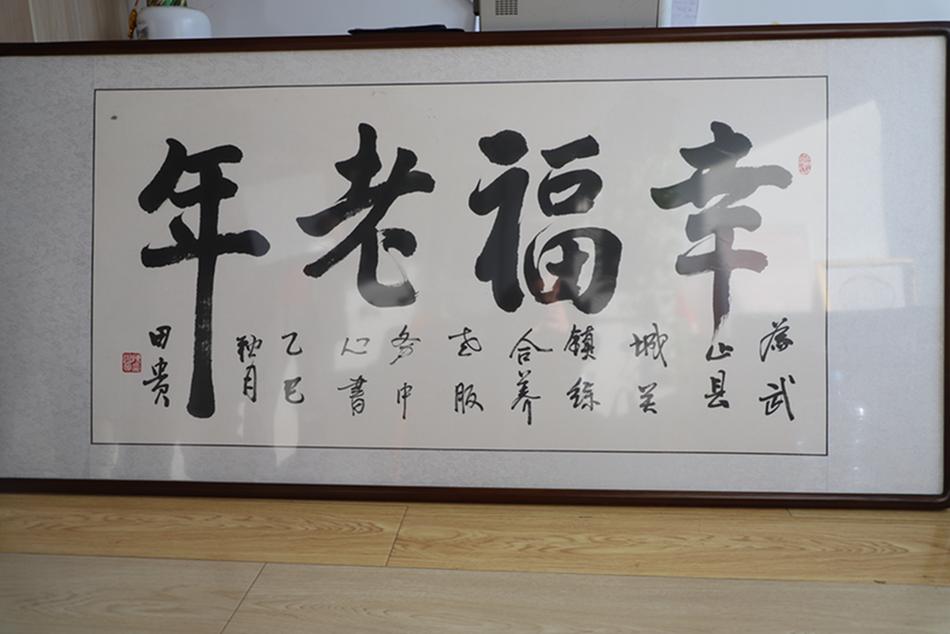 幸福老年
为武
山县
城关
镇综
合养
老服
务中
心书
乙巳
秋月
田贵